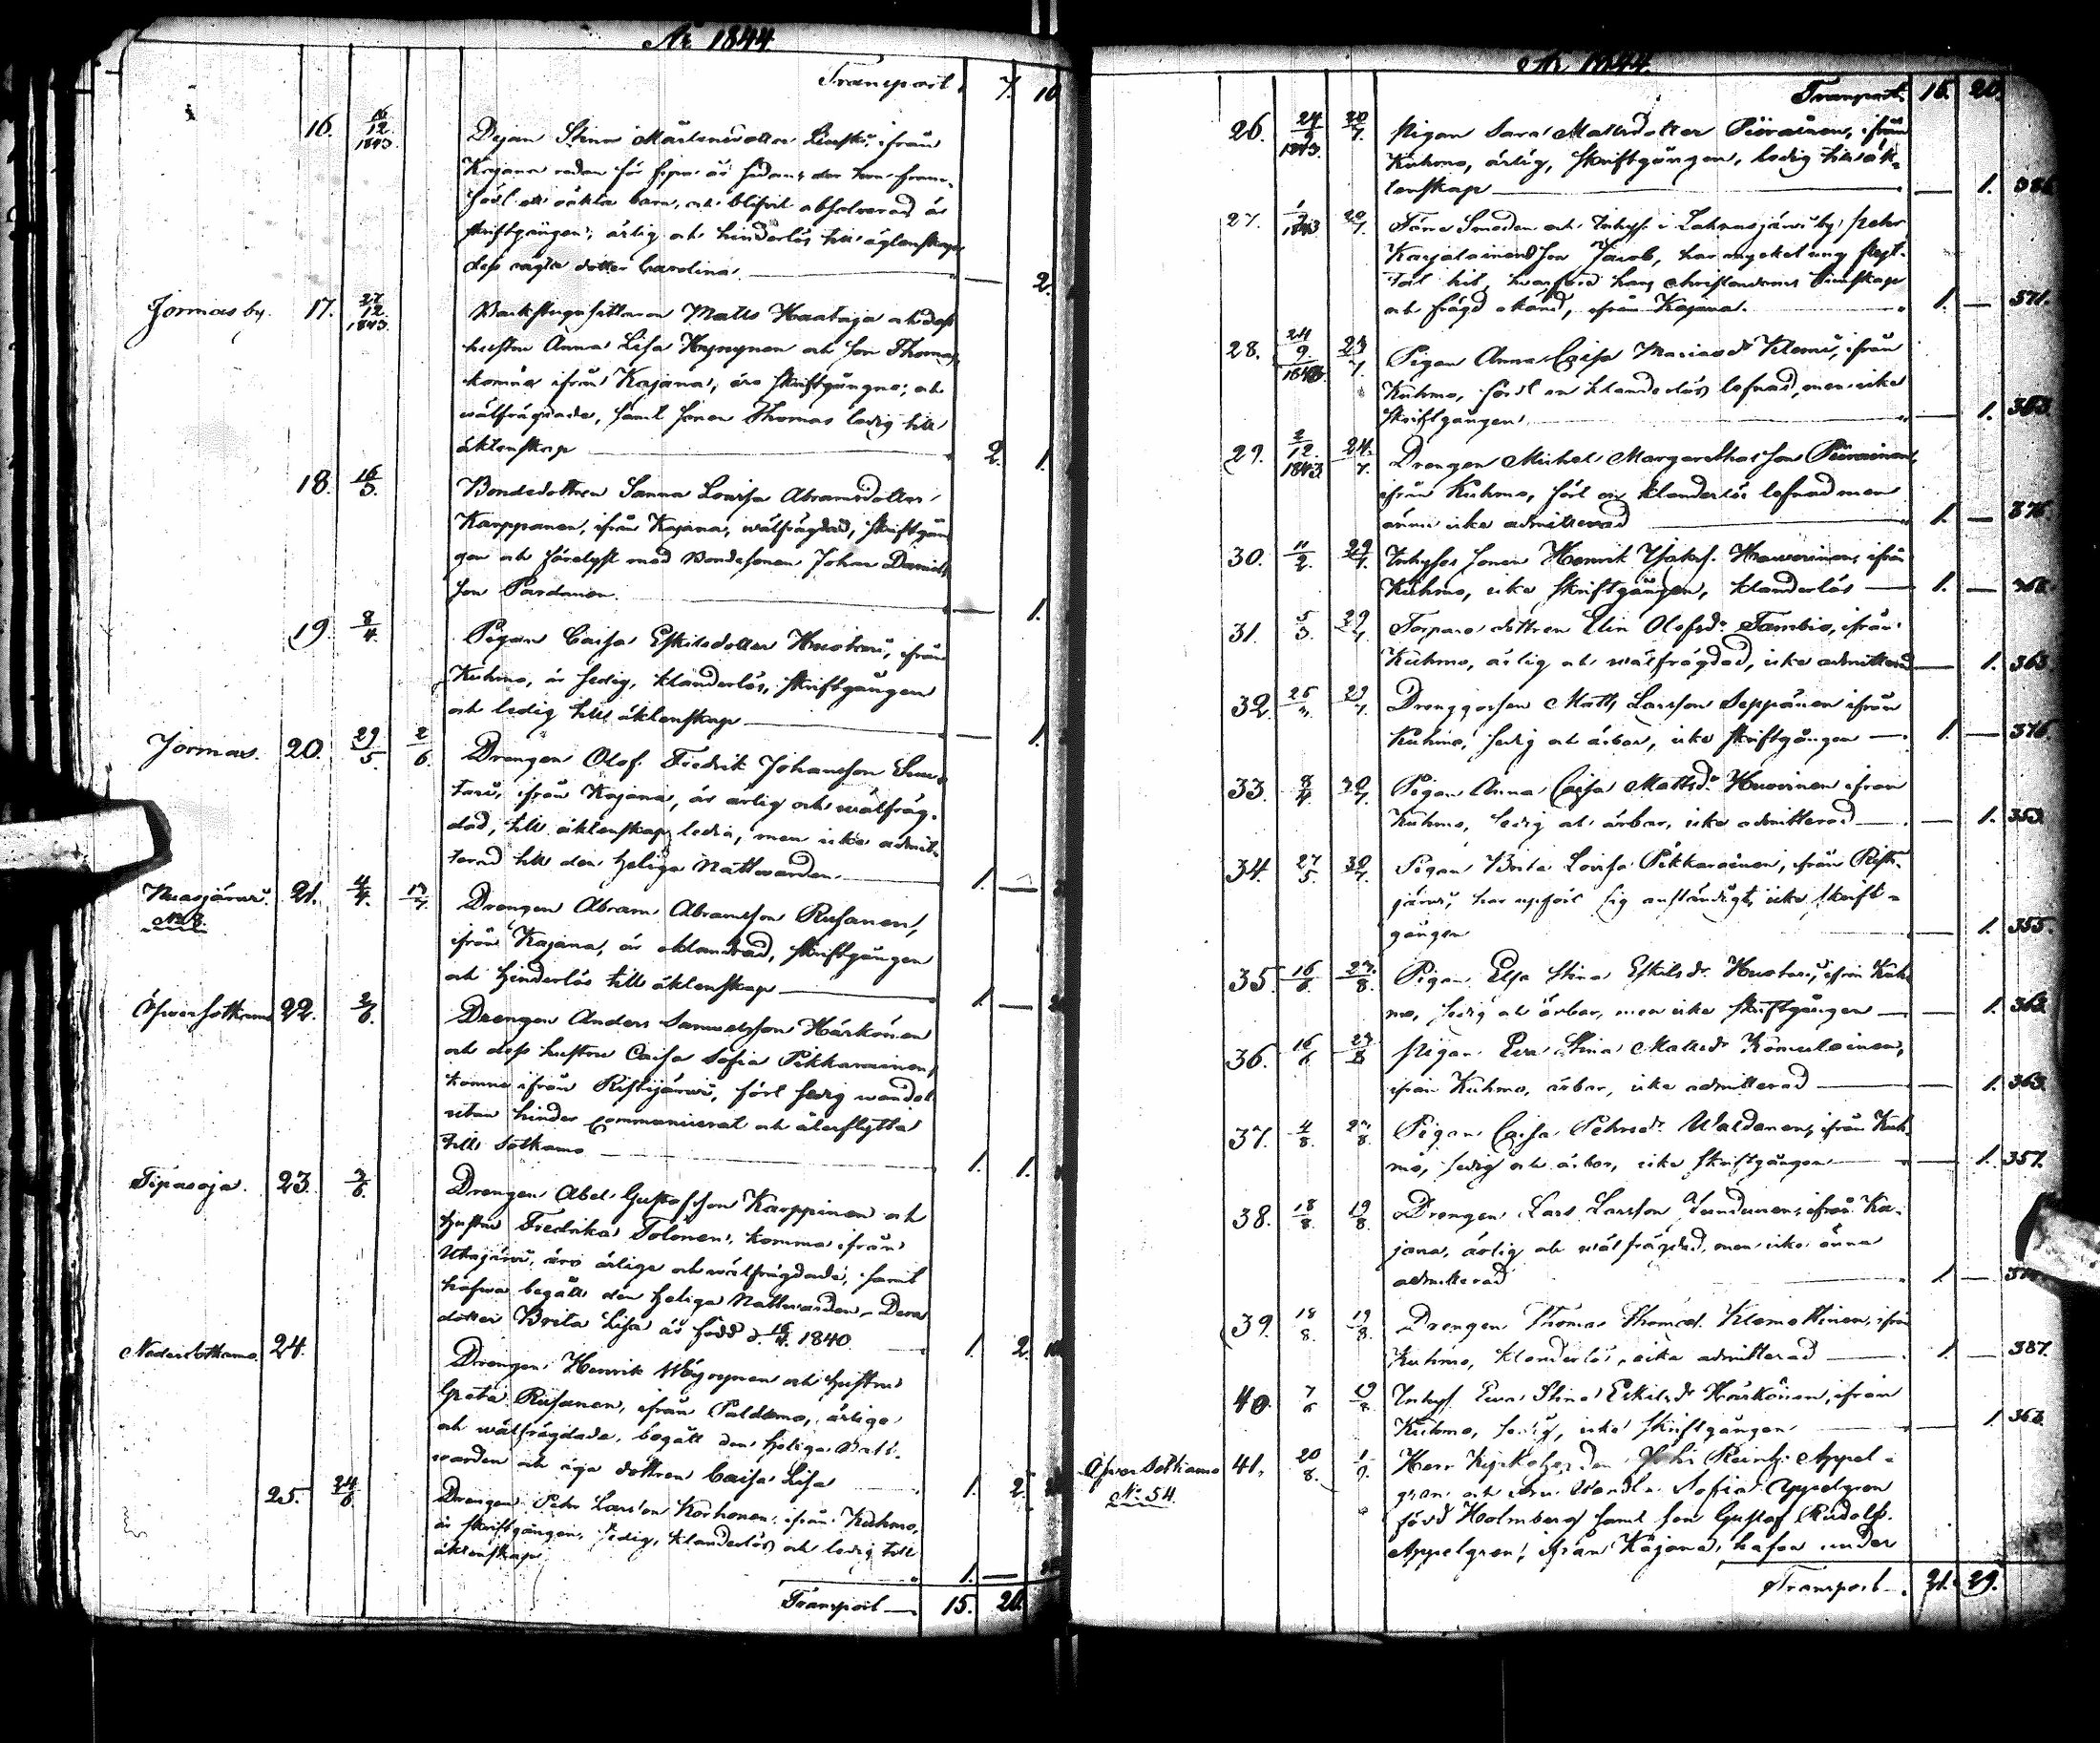 År 1844
Transport. 7. 10
16. 16/12 1843. Pigan Stina Mårtensdotter ifrån
Kajana redan för sju år sedan, der hon fram-
födt ett oäkta barn, och blifvit absolverad är
skriftgången, ärlig och hinderlös till ägtenskap,
dess oägta dotter Carolina. — 2.
Jormas by. 17. 27/12 1843. Backstugusittaren Matts Haataja och dess
hustru Anna Lisa Heyrynen och son Thomas,
komne ifrån Kajana, äro skriftgångne, och
wälfrägdade, samt sonen Thomas ledig till
äktenskap 2. 1.
18. 16/3. Bondedottren Sanna Lovisa Abramsdotter
Karppanen, ifrån Kajana, wälfrägdad, skriftgån
gen och förelyst med Bondesonen Johan Davids
son Pardanen. — 1.
19. 8/4. Pigan Caisa Eskilsdotter Huotari, ifrån
Kuhmo, är sedig, klanderlös, skriftgången
och ledig till äktenskap — 1.
Jormas. 20. 29/5. 2/6. Drengen Olof Fredrik Johansson
ifrån Kajana, är ärlig och wälfräg-
dad, till äktenskap ledig, men icke admit-
terad till den heliga Nattwarden. 1. —
Nuasjärvi. 21. 4/4. 17/7. Drengen Abram Abramsson Rusanen,
No 8.
ifrån Kajana, är oklandrad, skriftgången
och hinderlös till äktenskap 1. —
Öfversotkamo 22. 2/6. Drengen Anders Samuelsson Härkönen
och dess hustru Caisa Sofia Pikkarainen,
komne ifrån Ristijärvi, fört sedig wandel
utan hinder communicerat och återflytta
till Sotkamo 1. 1.
Tipasoja. 23. 3/6. Drengen Abel Gustafsson Karppinen och
hustru Fredrika Tolonen, komma ifrån
Utajärvi, äro ärlige och wälfrägdade, samt
hafwa begått den heliga Nattwarden. Dera
dotter Brita Lisa är född d. 16/4. 1840. 1. 2.
Nedersotkamo. 24. Drengen Henrik Wäyrynen och hustru
Greta Rusanen, ifrån Paldamo, ärlige
och wälfrägdade, begått den heliga Natt-
warden och äga dottren Caisa Lisa 1. 2.
25. 24/6 Drengen Pehr Larsson Korhonen, ifrån Kuhmo,
är skriftgången, sedig, klanderlös och ledig till
äktenskap 1. —
Transport — 15. 20.
År 1844.
Transport. 15. 20.
26. 24/9 1843. 20/7. Pigan Sara Mattsdotter Piirainen, ifrån
Kuhmo, ärlig, skriftgången, ledig till äk-
tenskap — 1.
27. 1843 20/7. Förre Smeden och Inhys. i Lahnasjärvi by Pehr
Karjalainens son Jacob, har mycket ung flyt-
tat hit, hwarföre hans christendoms kunskap
och frägd okänd, ifrån Kajana. 1. — 571.
28. 24/9. 1843. 23/7. Pigan Anna Caisa Mariasdr Klemi, ifrån
Kuhmo, fördt en klanderlös lefnad, men icke
skriftgången — 1. 363.
29. 2/12. 1843. 24/7. Drengen Michel Margarethas son Piirainen,
ifrån Kuhmo, fört en klanderlös lefnad men
ännu icke admitterad 1. — 376.
30. 11/2. 29/7. Inhyses sonen Henrik Hawerinen, ifrån
Kuhmo, icke skriftgången, klanderlös 1. —
31. 5/3. 29/7. Torpare dottren Elin Olofsdr Tambio, ifrån
Kuhmo, ärlig och wälfrägdad, icke admitterad — 1. 363
32. 29/7. Drenggossen Matts Larsson Seppänen ifrån
Kuhmo, sedig och ärbar, icke skriftgången 1. — 376.
33. 8/4 30/7. Pigan Anna Caisa Mattsdr Huovinen ifrån
Kuhmo, sedig och ärbar, icke admitterad — 1. 353.
34. 27/5. 30/7. Pigan Brita Lovisa Pikkarainen, ifrån Risti-
järvi, har uppfört sig anständigt, icke skrift-
gången — 1. 355.
35. 16/6. 27/8. Pigan Elsa Stina Eskilsdr Huotari, ifrån Kuh-
mo, sedig och ärbar, men icke skriftgången — 1. 363.
36. 16/6 27/8 Pigan Eva Stina Mattsdr Komulainen,
ifrån Kuhmo, ärbar, icke admitterad — 1. 363.
37. 4/8. 27/8. Pigan Caisa Pehrsdr Waldanen, ifrån Kuh-
mo, sedig och ärbar, icke skriftgången — 1. 357.
38. 18/8. 19/8. Drengen Lars Larsson ifrån Ka-
jana, ärlig och wälfrägdad, men icke ännu
admitterad 1. —
39. 18/8. 19/8. Drengen Thomas Thomæs. Klemettinen, ifrån
Kuhmo, klanderlös, icke admitterad 1. — 387.
40. 7/6 19/8. Inhys. Eva Stina Eskilsdr Härkönen, ifrån
Kuhmo, sedig, icke skriftgången — 1. 363.
Öfver Sotkamo 41. 20/8. 1/9. Herr Kyrkoherden Joh. Reinh. Appel-
No 54.
gren och Fru Wendla Sofia Appelgren
född Holmberg samt son Gustaf Rudolf
Appelgren, ifrån Kajana, hafva under
Transport. 21. 29.